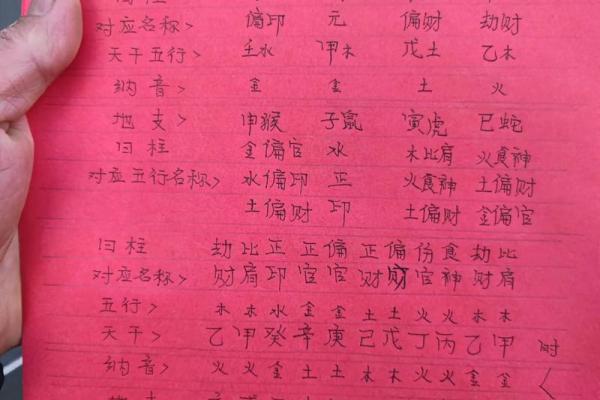 对应名称> 偏印 元 偏财 劫财
天干五行> 壬水 甲木 戊土 乙木
纳音> 金 金 土 火
地支> 申猴 子鼠 寅虎 巳蛇
日柱 金偏官 水 木比肩 火食神
对应五行名称> 水偏印 正 火食神 土偏财
土偏财 印 土偏财 金偏官
日柱 劫 比 正 正 偏 正 偏 份 食 劫 比
对应名称> 财 肩 印 官 官 财 财 官 神 财 肩
五行> 木 木 水 金 金 土 土 火 火 木 木
天干> 乙 甲 癸 辛 庚 己 戊 丁 丙 乙 甲 时
纳音> 火 火 金 土 土 木 木 火 火 金 金 <